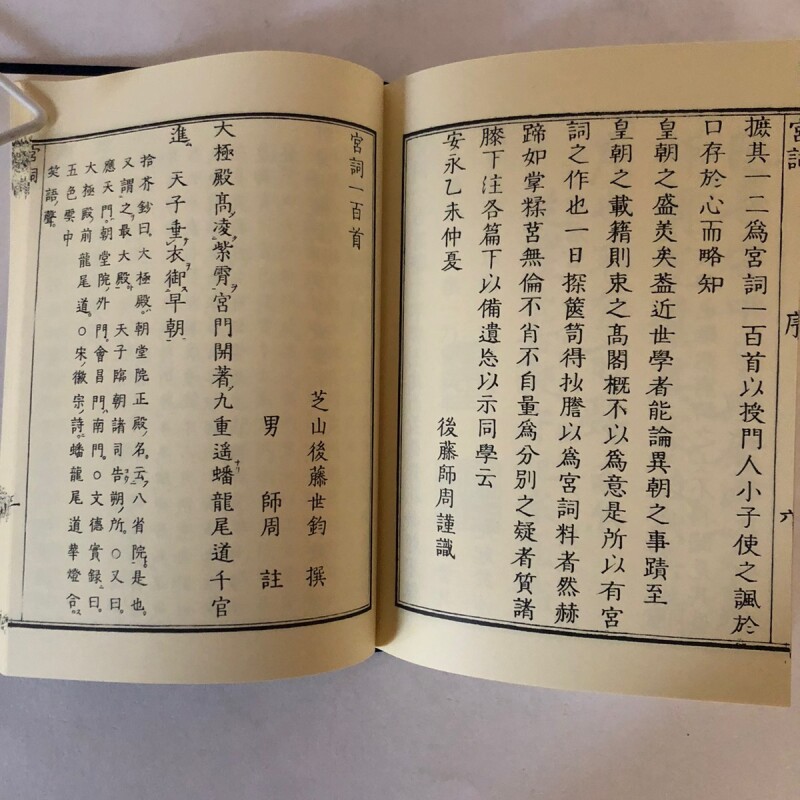 宮詞
序
六
摭其一二爲宮詞一百首以授門人小子使之諷於
口存於心而略知
皇朝之盛美矣蓋近世學者能論異朝之事蹟至
皇朝之載籍則束之髙閣概不以爲意是所以有宮
詞之作也一日探篋笥得抄謄以爲宮詞料者然赫
蹄如掌糅莒無倫不肖不自量爲分別之疑者質諸
膝下注各篇下以備遺忘以示同學云
安永乙未仲夏
後藤師周謹識
宮詞一百首
芝山後藤世鈞 撰
男 師周 註
大極殿髙凌紫霄宮門開著九重遥蟠龍尾道千官
進 天子垂衣御早朝
拾芥鈔曰大極殿朝堂院正殿名云八省院是也
又謂之最大殿 天子臨朝諸司告朔所○又曰
應天門朝堂院外門會昌門南門○文德實録曰
大極殿前龍尾道○宋徽宗詩蟠龍尾道華燈合
五色雲中
笑語聲
宮詞
一